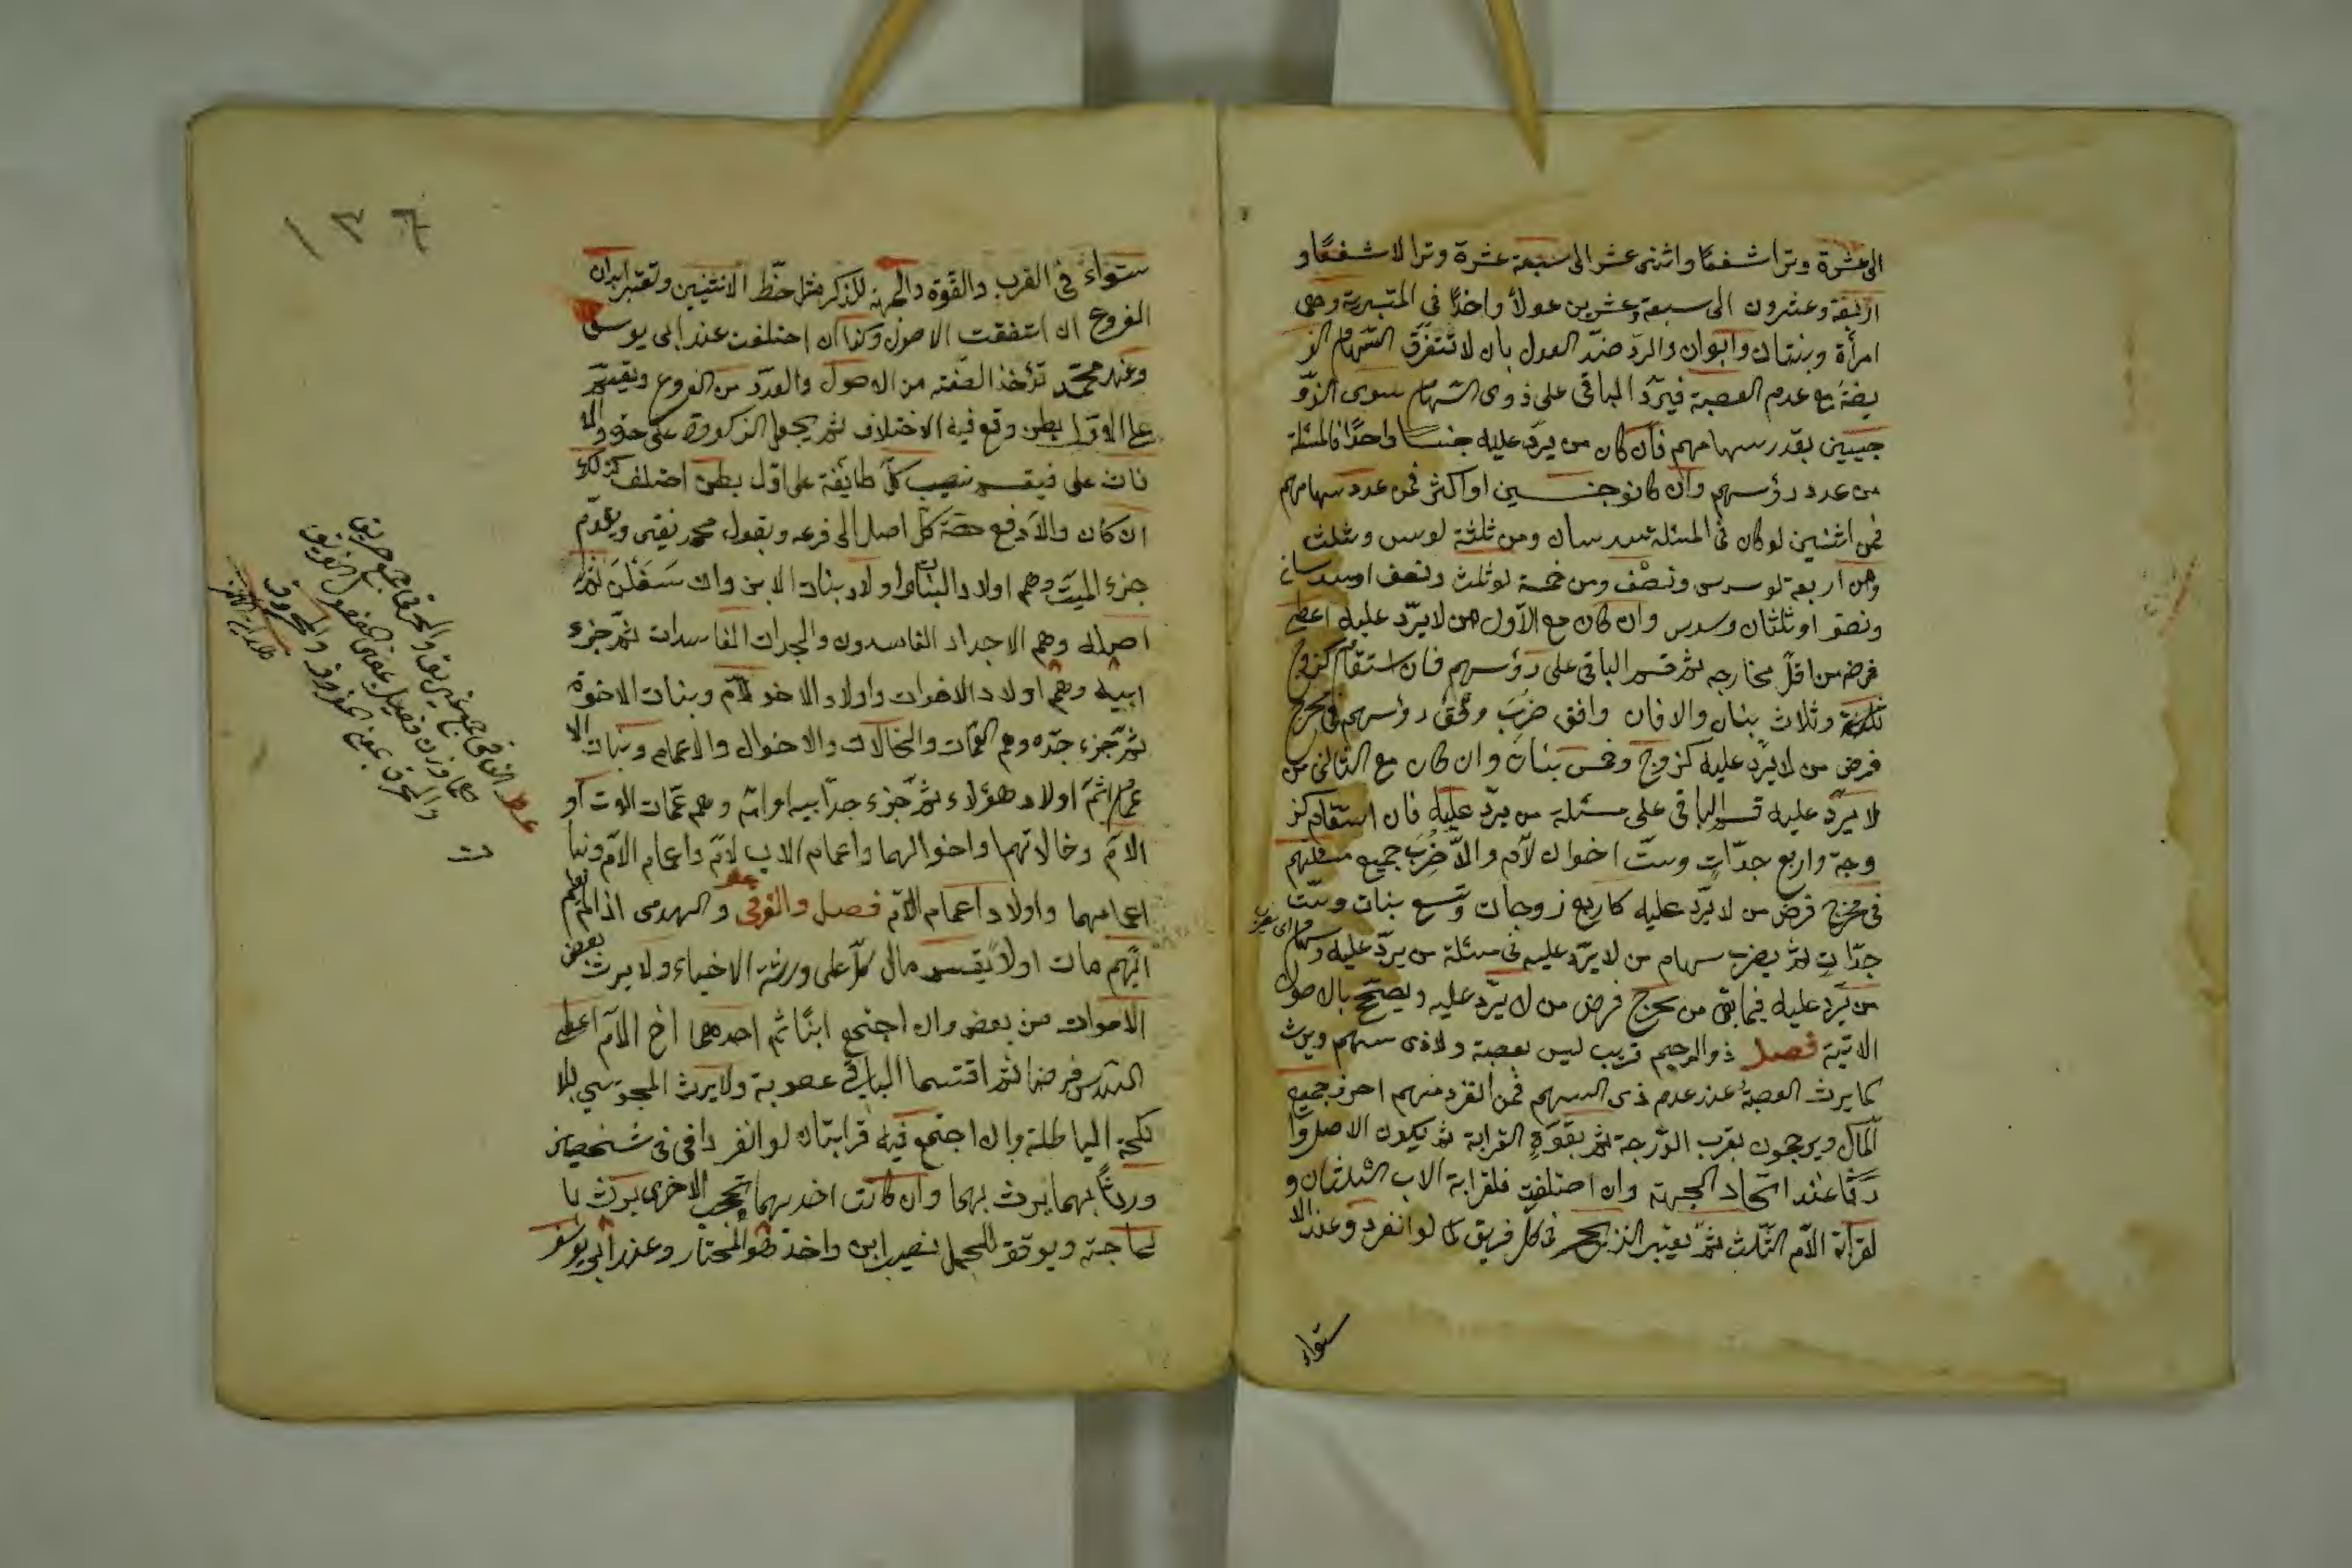 الى عشرة وترا شفعًا واثنى عشر الى سبعة عشرة وترا لا شفعًا و
اربعة وعشرون الى سبعة وعشرين عولاً واحدًا فى المنبرية وهى
امرأة وبنتان وابوان والرد ضدّ العول بان لا تستغرق السهام الفر
يضة مع عدم العصبة فيردّ الباقى على ذوى السهام سوى الزو
جيين بقدر سهامهم فان كان من يردّ عليه جنسا واحدًا فالمسئلة
من عدد رؤسهم وان كانو جنسين او اكثر فمن عدد سهامهم
فمن اثنين لو كان فى المسئلة سدسان ومن ثلثة لو سدس وثلث
ومن اربعة لو سدس ونصف ومن خمسة لو ثلث ونصف او سدسان
ونصف او ثلثان وسدس وان كان مع الاول من لا يردّ عليه اعطى
فرضه من اقلّ مخارجه ثم قسم الباقى على رؤسهم فان استقام كزوج
وثلاث بنات والا فان وافق ضرب وفق رؤسهم فى مخرج
فرض من لا يردّ عليه كزوج وخمس بنات وان كان مع الثانى من
لا يردّ عليه قسم الباقى على مسئلة من يردّ عليه فان استقام كز
وجة واربع جدّات وستّ اخوات لامّ والاّ ضرب جميع مسئلتهم
فى مخرج فرض من لا يردّ عليه كاربع زوجات وتسع بنات وستّ
جدّات ثم يضرب سهام من لا يردّ عليه فى مسئلة من يردّ عليه وسهام
من يردّ عليه فيما بقى من مخرج فرض من لا يردّ عليه ويصحّح بالاصول
الاتية فصل ذو الرحم قريب ليس بعصبة ولا ذى سهم ويرث
كما يرث العصبة عند عدم ذى السهم فمن انفرد منهم احرز جميع
المال ويرجحون بقرب الدرجة ثم بقوة القرابة ثم بكون الاصل وا
رثا عند اتحاد الجهة وان اختلفت فلقرابة الاب الثلثان و
لقرابة الام الثلث ثم يعتبر الترجيح فى كل فريق كما لو انفرد وعند الا
ستواء
١٣٦
ستواء فى القرب والقوة والجهة للذكر مثل حظّ الانثيين وتعتبر ابدان
الفروع ان اتفقت الاصول وكذا ان اختلفت عند ابى يوسف
وعند محمّد تؤخذ الصفة من الاصول والعدد من الفروع ويقسم
على اول بطن وقع فيه الاختلاف ثم يجعل الذكور على حدة والا
ناث على فيقسم نصيب كلّ طائفة على اول بطن اختلف كذلك
ان كان والا دفع حصة كل اصل الى فرعه وبقول محمد يفتى ويقدّم
جزء الميت وهم اولاد البنات واولاد بنات الابن وان سفلن ثم
اصله وهم الاجداد الفاسدون والجدات الفاسدات ثم جزء
ابيه وهم اولاد الاخوات واولاد الاخوة لام وبنات الاخوة
ثم جزء جدّه وهم العمّات والخالات والاخوال والاعمام وبنات الا
عمام ثم اولاد هؤلاء ثم جزء جدّ ابيه او امّه وهم عمّات الاب او
الام وخالاتهما واخوالهما واعمام الاب لامّ واعمام الامّ وبنا
اعمامهما واولاد اعمام الامّ فصل والغرقى والهدمى اذا لم يعلم
ايّهم مات اولاً يقسم مال كلّ على ورثته الاحياء ولا يرث بعض
الاموات من بعض وان اجتمع ابنا عم احدهما اخ لامّ اعطى
السدس فرضا ثم اقتسما الباقى عصوبة ولا يرث المجوسى بالا
نكحة الباطلة وان اجتمع فيه قرابتان لو انفردا فى شخصين
ورثا بهما يرث بهما وان كانت احديهما تحجب الاخرى يرث با
لحاجبة ويوقف للحمل نصيب ابن واحد هو المختار وعند ابى يوسف